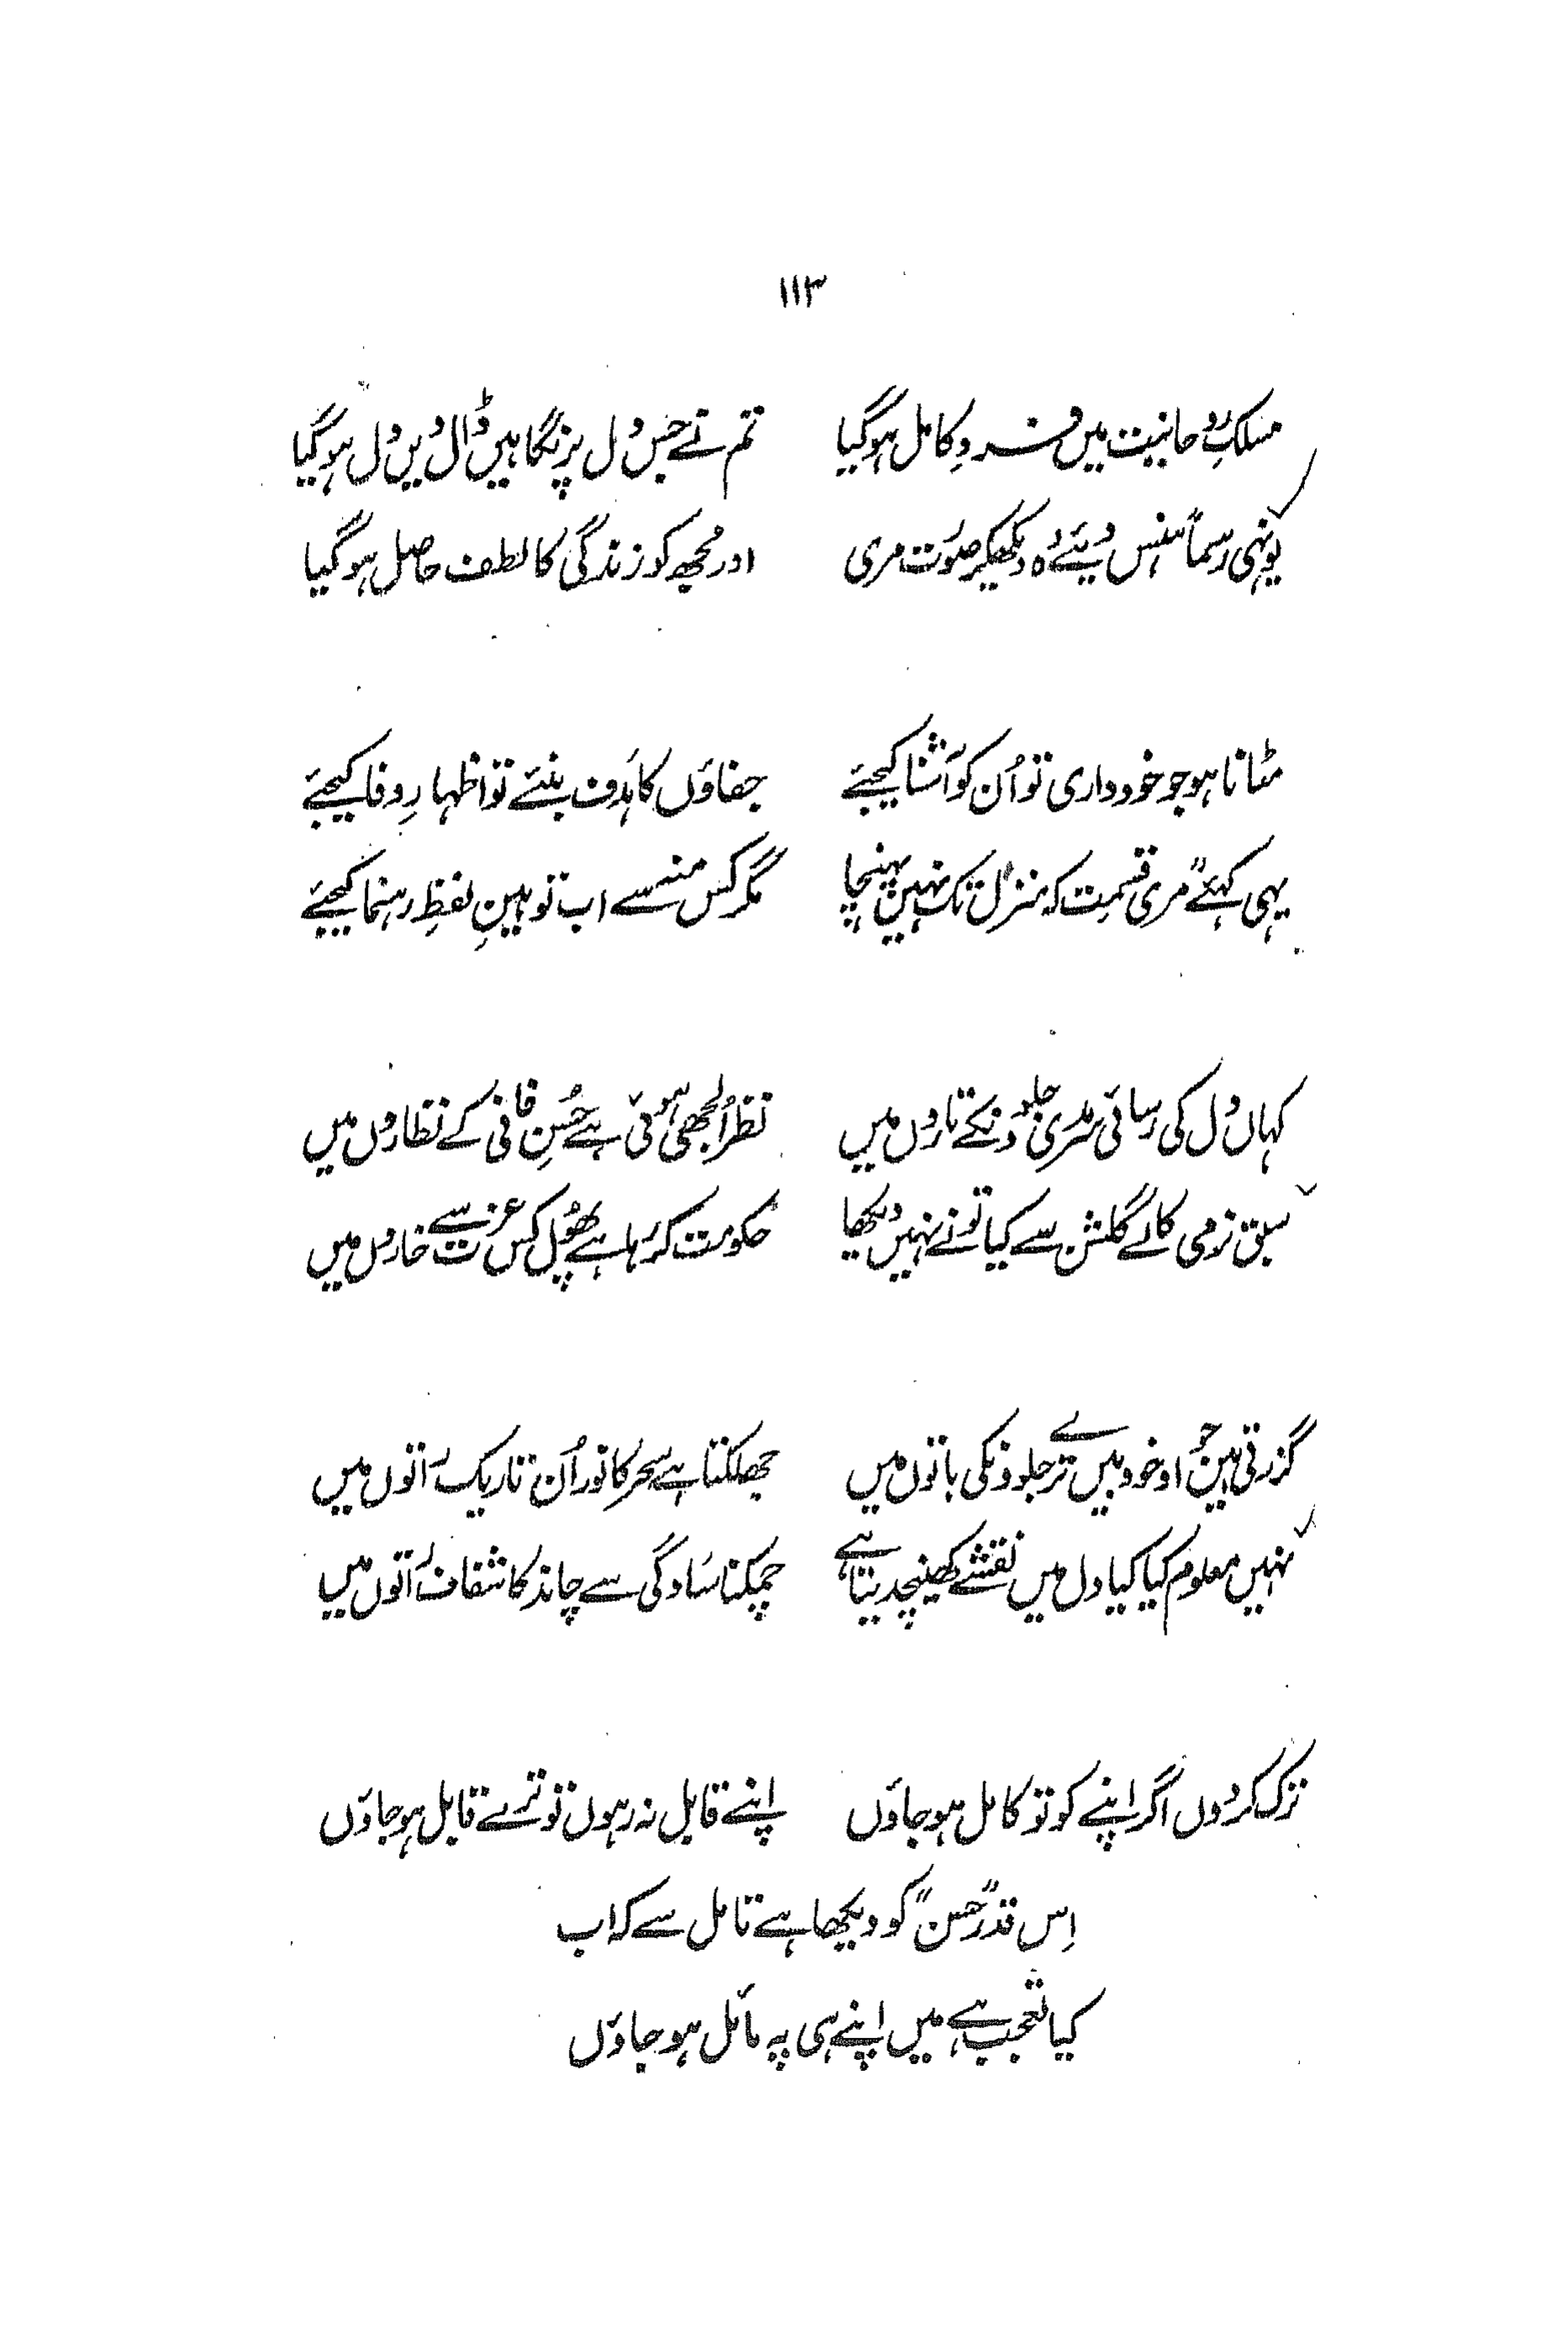 ۱۱۳
مسلکِ روحانیت میں فردِ کامل ہوگیا تم نے جس دل پر نگاہیں ڈال دیں دل ہوگیا
یونہی رسماً ہنس دیئے وہ دیکھکر صورت مری اور مجھ کو زندگی کا لطف حاصل ہوگیا
مٹانا ہو جو خودداری تو اُن کو آشنا کیجئے جفاؤں کا ہدف بنئے تو اظہارِ وفا کیجئے
یہی کہئے "مری قسمت کہ منزل تک نہیں پہنچا" مگر کس منہ سے اب توہینِ لفظِ رہنما کیجئے
کہاں دل کی رسائی سرمدی جلووں کے تاروں میں نظر اُلجھی ہوئی ہے حُسنِ فانی کے نظاروں میں
سبق نرمی کا لے گلشن سے کیا تو نے نہیں دیکھا حکومت کر رہا ہے پھُول کس عزت سے خاروں میں
گزرتی ہیں جو او خود بیں ترے جلوونکی باتوں میں جھلکتا ہے سحر کا نور اُن تاریک راتوں میں
نہیں معلوم کیا کیا دل میں نقشے کھینچدیتا ہے چمکنا سادگی سے چاند کا شفاف راتوں میں
ترک کردوں اگر اپنے کو تو کامل ہوجاؤں اپنے قابل نہ رہوں تو ترے قابل ہوجاؤں
اِس قدر "حسن" کو دیکھا ہے تامل سے کہ اب
کیا تعجب ہے میں اپنے ہی پہ مائل ہوجاؤں